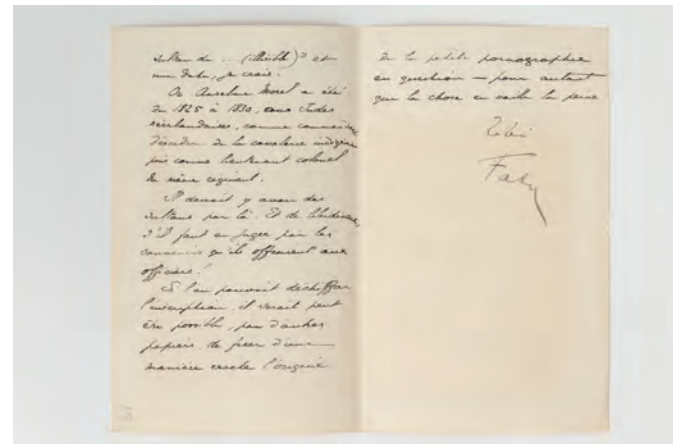 sultan de ... (illisible) et
une date, je crois.
Or Anselme Morel a été
de 1825 à 1830, aux Indes
néerlandaises, comme commandant
d'escadron de la cavalerie indigène
puis comme lieutenant colonel
du même régiment.
Il devait y avoir des
sultans par là. Et de
s'il faut en juger par les
qu'ils offraient aux
officiers!
Si l'on pouvait déchiffrer
l'inscription, il serait peut
être possible, par d'autres
papiers, de fixer d'une
manière exacte l'origine
de la petite pornographie
en question — pour autant
que la chose en vaille la peine.